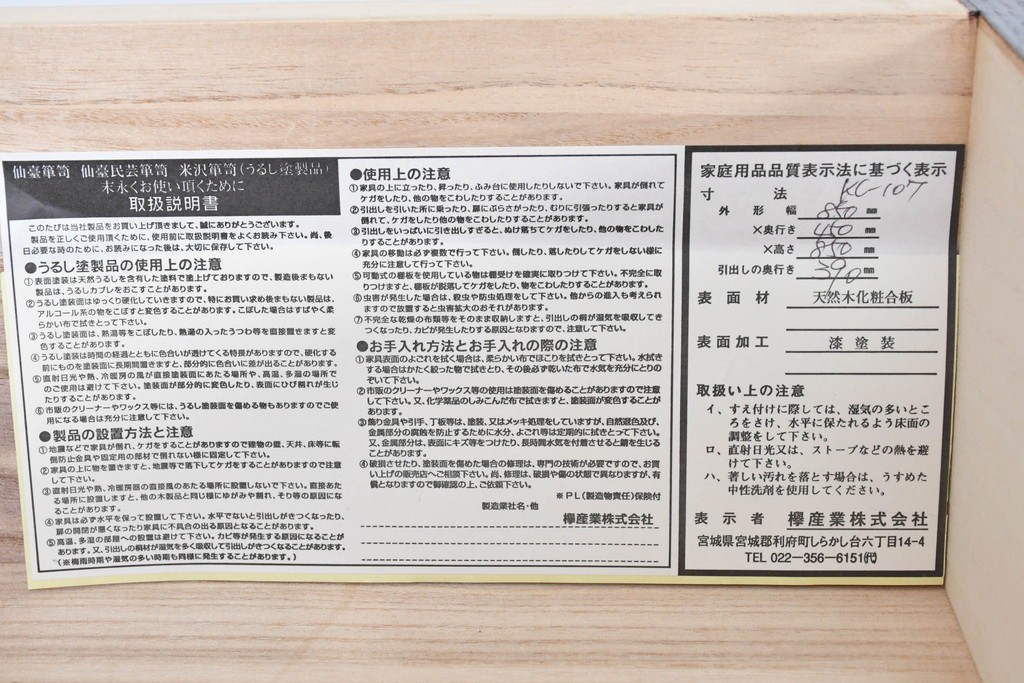 仙臺箪笥 仙臺民芸箪笥 米沢箪笥(うるし塗製品)
末永くお使い頂くために
取扱説明書
このたびは当社製品をお買い上げ頂きまして、誠にありがとうございます。
製品を正しくご使用頂くために、使用前に取扱説明書をよくお読み下さい。尚、後
日必要な時のために、お読みになった後は、大切に保存して下さい。
●うるし塗製品の使用上の注意
①表面塗装は天然うるしを含有した塗料で塗上げておりますので、製造後まもない
製品は、うるしカブレをおこすことがあります。
②うるし塗装面はゆっくり硬化していきますので、特にお買い求め後まもない製品は、
アルコール系の物をこぼすと変色することがあります。こぼした場合はすばやく柔
らかい布で拭きとって下さい。
③うるし塗装面は、熱湯等をこぼしたり、熱湯の入ったうつわ等を直接置きますと変
色することがあります。
④うるし塗装は時間の経過とともに色合いが透けてくる特長がありますので、硬化する
前にものを塗装面に長期間置きますと、部分的に色合いに差が出ることがあります。
⑤直射日光や熱、冷暖房の風が直接塗装面にあたる場所や、高温、多湿の場所で
のご使用は避けて下さい。塗装面が部分的に変色したり、表面にひび割れが生じ
たりすることがあります。
⑥市販のクリーナーやワックス等には、うるし塗装面を傷める物もありますのでご使
用になる場合は充分に注意して下さい。
●製品の設置方法と注意
①地震などで家具が倒れ、ケガをすることがありますので建物の壁、天井、床等に転
倒防止金具や固定用の部材で倒れない様に固定して下さい。
②家具の上に物を置きますと、地震等で落下してケガをすることがありますので注意
して下さい。
③直射日光や熱、冷暖房器の直接風のあたる場所に設置しないで下さい。直接あた
る場所に設置しますと、他の木製品と同じ様にゆがみや割れ、そり等の原因にな
ることがあります。
④家具は必ず水平を保って設置して下さい。水平でないと引出しがきつくなったり、
扉の開閉が悪くなったり家具に不具合の出る原因となることがあります。
⑤高温、多湿の部屋への設置は避けて下さい。カビ等が発生する原因になることが
あります。又、引出しの桐材が湿気を多く吸収して引出しがきつくなることがあります。
(※梅雨時期や湿気の多い時期も同様に発生することがあります。)
●使用上の注意
①家具の上に立ったり、昇ったり、ふみ台に使用したりしないで下さい。家具が倒れて
ケガをしたり、他の物をこわしたりすることがあります。
②引出しを引いた所に乗ったり、扉にぶらさがったり、むりに引張ったりすると家具が
倒れて、ケガをしたり他の物をこわしたりすることがあります。
③引出しをいっぱいに引き出しすぎると、ぬけ落ちてケガをしたり、他の物をこわした
りすることがあります。
④家具の移動は必ず複数で行って下さい。倒したり、落したりしてケガをしない様に
充分に注意して行って下さい。
⑤可動式の棚板を使用している物は棚受けを確実に取りつけて下さい。不完全に取
りつけますと、棚板が脱落してケガをしたり、物をこわしたりすることがあります。
⑥虫害が発生した場合は、殺虫や防虫処理をして下さい。他からの進入も考えられ
ますので放置すると虫害拡大のおそれがあります。
⑦不完全な乾燥の布類等をそのまま収納しますと、引出しの桐が湿気を吸収して引
きつくなったり、カビが発生したりする原因となりますので、注意して下さい。
●お手入れ方法とお手入れの際の注意
①家具表面のよごれを拭く場合は、柔らかい布でほこりを拭きとって下さい。水拭き
する場合はかたく絞った物で拭きとり、その後必ず乾いた布で水気を充分にとりの
ぞいて下さい。
②市販のクリーナーやワックス等の使用は塗装面を傷めることがありますので注意
して下さい。又、化学薬品のしみこんだ布で拭きますと、塗装面が変色することがあ
ります。
③飾り金具や引手、丁板等は、塗装、又はメッキ処理をしていますが、自然退色及び、
金属部分の腐蝕を防止するために水分、よごれ等は定期的に拭きとって下さい。
又、金属部分は、表面にキズ等をつけたり、長時間水気を付着させると錆を生じる
ことがあります。
④破損させたり、塗装面を傷めた場合の修理は、専門の技術が必要ですので、お買
い上げの販売店へご相談下さい。尚、修理は、破損や傷の状態で異なりますが、有
償となりますので御確認の上、ご依頼下さい。
※PL(製造物責任)保険付
製造業社名・他
欅産業株式会社
家庭用品品質表示法に基づく表示
寸法 KC-107
外形幅 850 mm
×奥行き 450 mm
×高さ 850 mm
引出しの奥行き 390 mm
表面材 天然木化粧合板
表面加工 漆塗装
取扱い上の注意
イ、すえ付けに際しては、湿気の多いとこ
ろをさけ、水平に保たれるよう床面の
調整をして下さい。
ロ、直射日光又は、ストーブなどの熱を避
けて下さい。
ハ、著しい汚れを落とす場合は、うすめた
中性洗剤を使用してください。
表示者 欅産業株式会社
宮城県宮城郡利府町しらかし台六丁目14-4
TEL 022-356-6151㈹